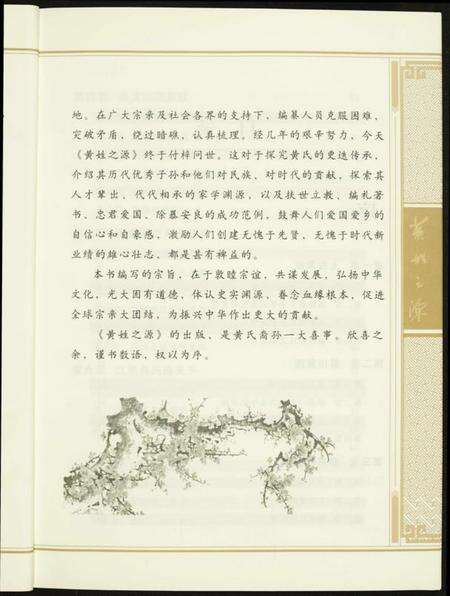 地。在广大宗亲及社会各界的支持下，编纂人员克服困难，
突破矛盾，绕过暗礁，认真梳理。经几年的艰辛努力，今天
《黄姓之源》终于付梓问世。这对于探究黄氏的更迭传承，
介绍其历代优秀子孙和他们对民族、对时代的贡献，探索其
人才辈出、代代相承的家学渊源，以及扶世立教、编札著
书、忠君爱国、除暴安良的成功范例，鼓舞人们爱国爱乡的
自信心和自豪感，激励人们创建无愧于先贤，无愧于时代新
业绩的雄心壮志，都是甚有裨益的。
本书编写的宗旨，在于敦睦宗谊，共谋发展，弘扬中华
文化，光大固有道德，体认史实渊源，眷念血缘根本，促进
全球宗亲大团结，为振兴中华作出更大的贡献。
《黄姓之源》的出版，是黄氏裔孙一大喜事。欣喜之
余，谨书数语，权以为序。
黄姓之源